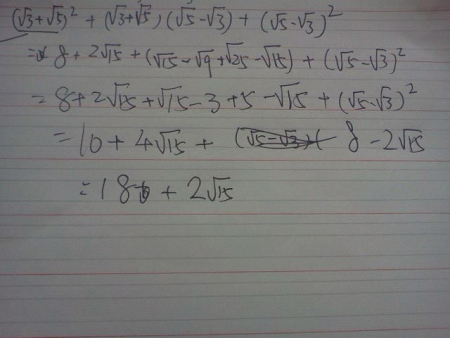 (√3+√5)² + (√3+√5)(√5-√3) + (√5-√3)²
= 8 + 2√15 + (√15 - √9 + √25 - √15) + (√5-√3)²
= 8 + 2√15 + √15 - 3 + 5 - √15 + (√5-√3)²
= 10 + 4√15 + 8 - 2√15
= 18 + 2√15